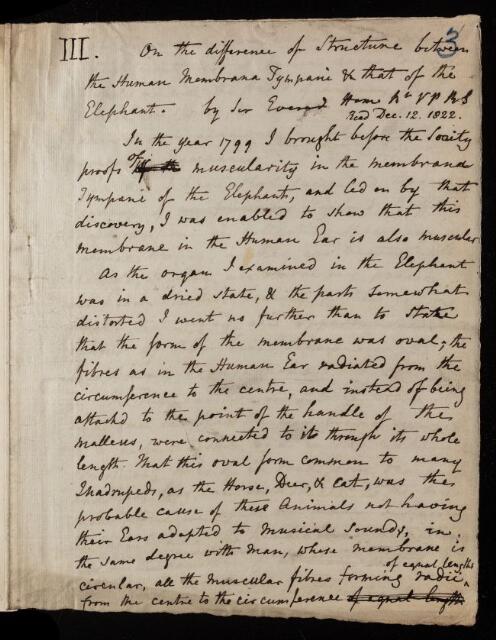 3
III. On the difference of Structure between
the Human Membrana Tympani & that of the
Elephant. by Sir Everard Home Bt V P R S
Read Dec. 12. 1822.
In the year 1799 I brought before the Society
proofs of muscularity in the membrana
Tympani of the Elephant, and led on by that
discovery, I was enabled to show that this
membrane in the Human Ear is also muscular
As the organ I examined in the Elephant
was in a dried state, & the parts somewhat
distorted I went no further than to state
that the form of the membrane was oval; the
fibres as in the Human Ear radiated from the
circumference to the centre, and instead of being
attachd to the point of the handle of the
malleus, were connected to it through its whole
length. That this oval form common to many
Quadrupeds, as the Horse, Deer, & Cat, was the
probable cause of these Animals not having
their Ears adapted to musical sounds, in
the same degree with man, whose membrane is
of equal lengths
circular, all the muscular fibres forming radii
from the centre to the circumference of equal length